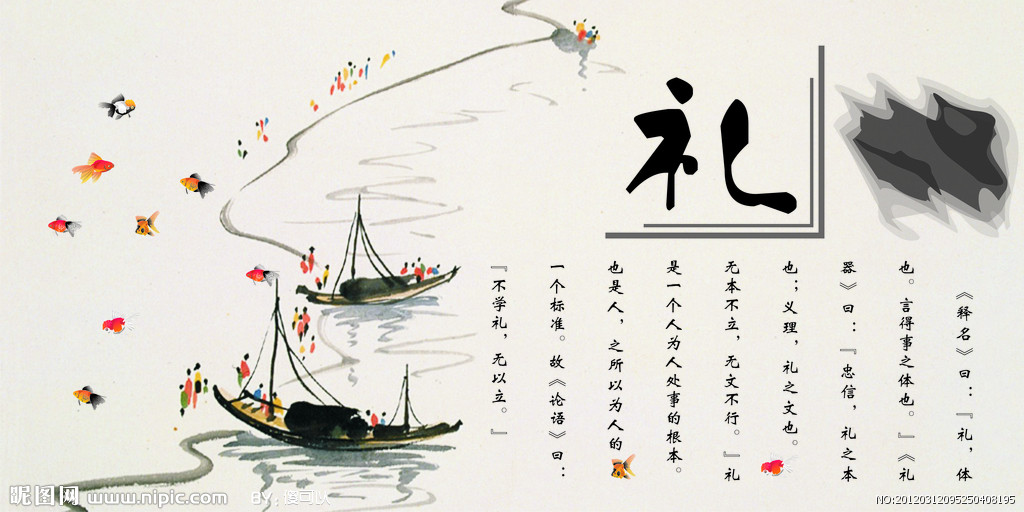 礼
《释名》曰：『礼，体
也。言得事之体也。』《礼
器》曰：『忠信，礼之本
也；义理，礼之文也。
无本不立，无文不行。』礼
是一个人为人处事的根本。
也是人，之所以为人的
一个标准。故《论语》曰：
『不学礼，无以立。』
昵图网 www.nipic.com BY：爱可以
NO:20120312095250408195